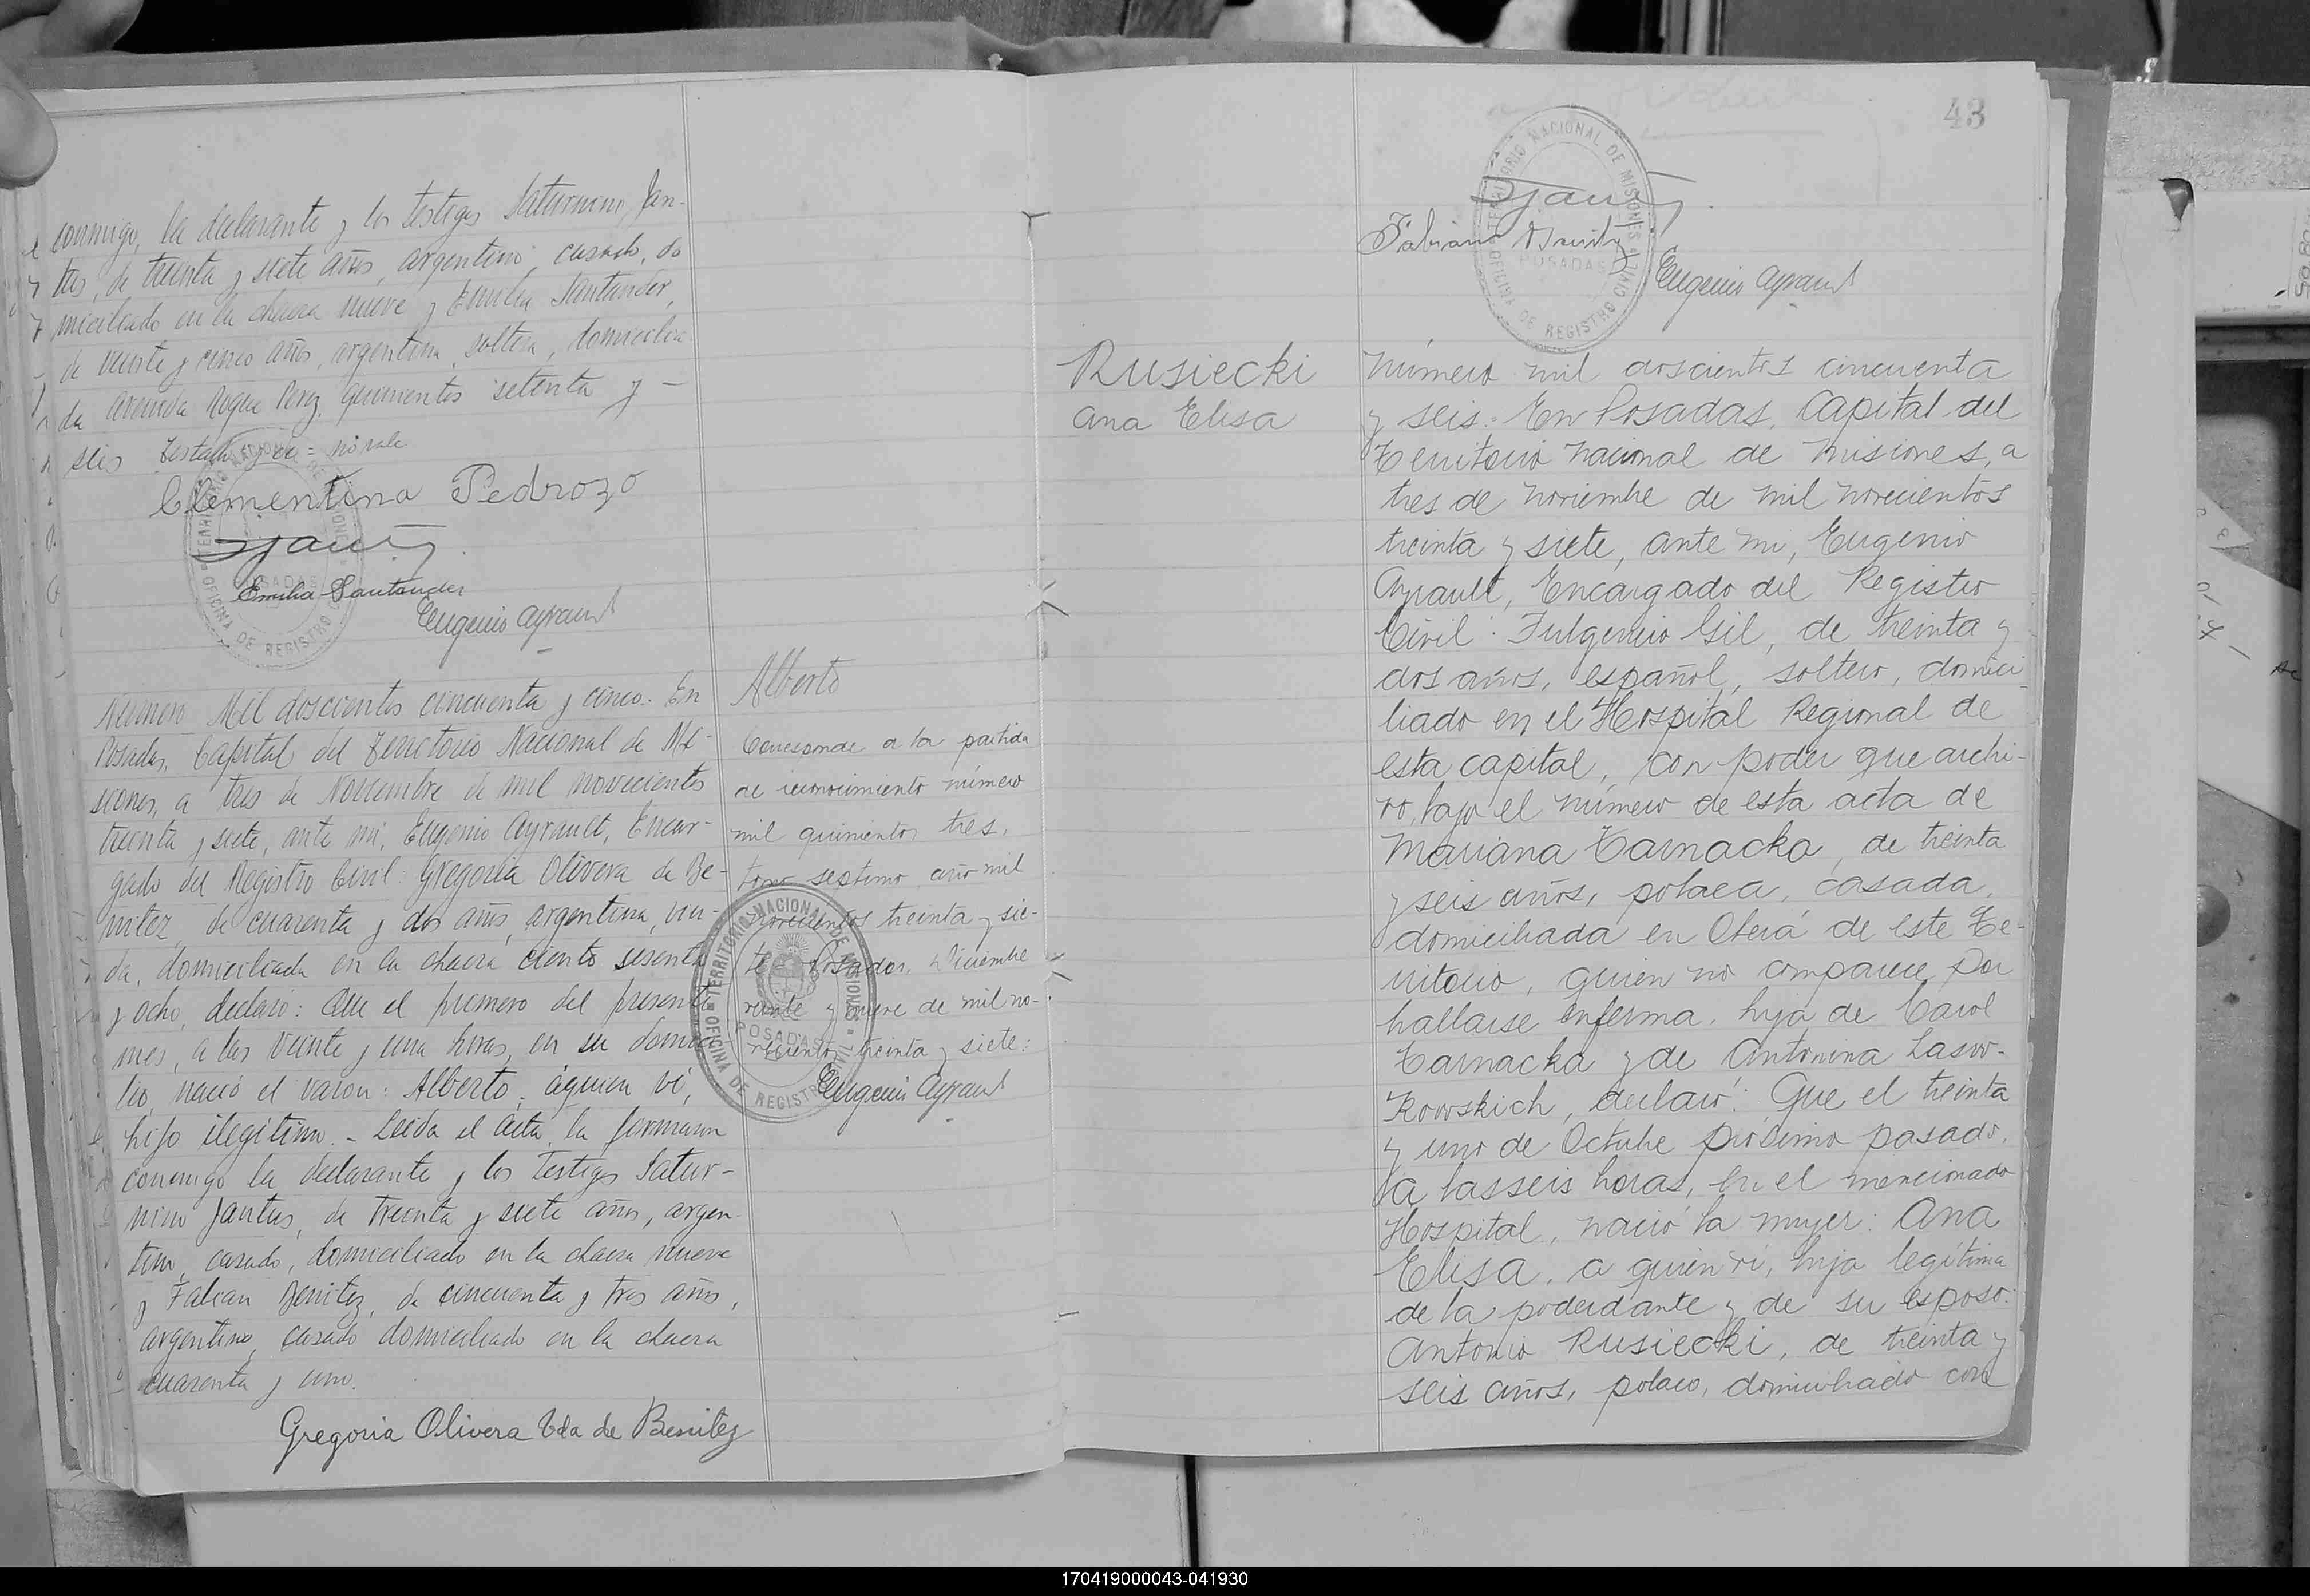 conmigo, la declarante y los testigos Saturnino Jan-
tus, de treinta y siete años, argentino, casado, do
miciliado en la chacra nueve y Emilia Santander,
de veinte y cinco años, argentina, soltera, domicilia
da avenida Roque Perez quinientos setenta y -
seis Testado = no vale
Clementina Pedrozo
SJantus
Emilia Santander
Eugenio Ayrault
TERRITORIO NACIONAL DE MISIONES
POSADAS
OFICINA DE REGISTRO CIVIL
Número Mil doscientos cincuenta y cinco.- En
Posadas, Capital del Territorio Nacional de Mi-
siones, a tres de Noviembre de mil novecientos
treinta y siete, ante mi, Eugenio Ayrault, Encar-
gado del Registro Civil: Gregoria Olivera de Be-
nitez, de cuarenta y dos años, argentina, viu-
da, domiciliada en la chacra ciento sesenta
y ocho, declaró: Que el primero del presente
mes, a las veinte y una horas, en su domici-
lio, nació el varon: Alberto, áquien ví,
hijo ilegitimo.- Leída el acta, la firmaron
conmigo la declarante y los testigos Satur-
nino Jantus, de treinta y siete años, argen-
tino, casado, domiciliado en la chacra nueve
y Fabian Benitez, de cincuenta y tres años,
argentino, casado domiciliado en la chacra
cuarenta y uno.
Gregoria Olivera Vda de Benitez
Alberto
Corresponde a la partida
de reconocimiento número
mil quinientos tres,
tomo septimo año mil
novecientos treinta y sie-
te Posadas, Diciembre
veinte y nueve de mil no-
vecientos treinta y siete:
Eugenio Ayrault
TERRITORIO NACIONAL DE MISIONES
POSADAS
OFICINA DE REGISTRO CIVIL
43
TERRITORIO NACIONAL DE MISIONES
POSADAS
OFICINA DE REGISTRO CIVIL
SJantus
Fabian Benitez
Eugenio Ayrault
Rusiecki
Ana Elisa
Número mil doscientos cincuenta
y seis.- En Posadas, Capital del
Territorio Nacional de Misiones, a
tres de noviembre de mil novecientos
treinta y siete, ante mi, Eugenio
Ayrault, Encargado del Registro
Civil: Fulgencio Gil, de treinta y
dos años, español, soltero, domici
liado en el Hospital Regional de
esta capital, con poder que archi-
vo, bajo el número de esta acta de
Mariana Tarnacka, de treinta
y seis años, polaca, casada,
domiciliada en Oberá de este Te-
rritorio, quien no comparece por
hallarse enferma, hija de Carol
Tarnacka y de Antonina Lasow-
Kowskich, declaró: Que el treinta
y uno de Octubre próximo pasado,
a las seis horas, en el mencionado
Hospital, nació la mujer: Ana
Elisa, a quien ví, hija legítima
de la poderdante y de su esposo:
Antonio Rusiecki, de treinta y
seis años, polaco, domiciliado con
170419000043-041930